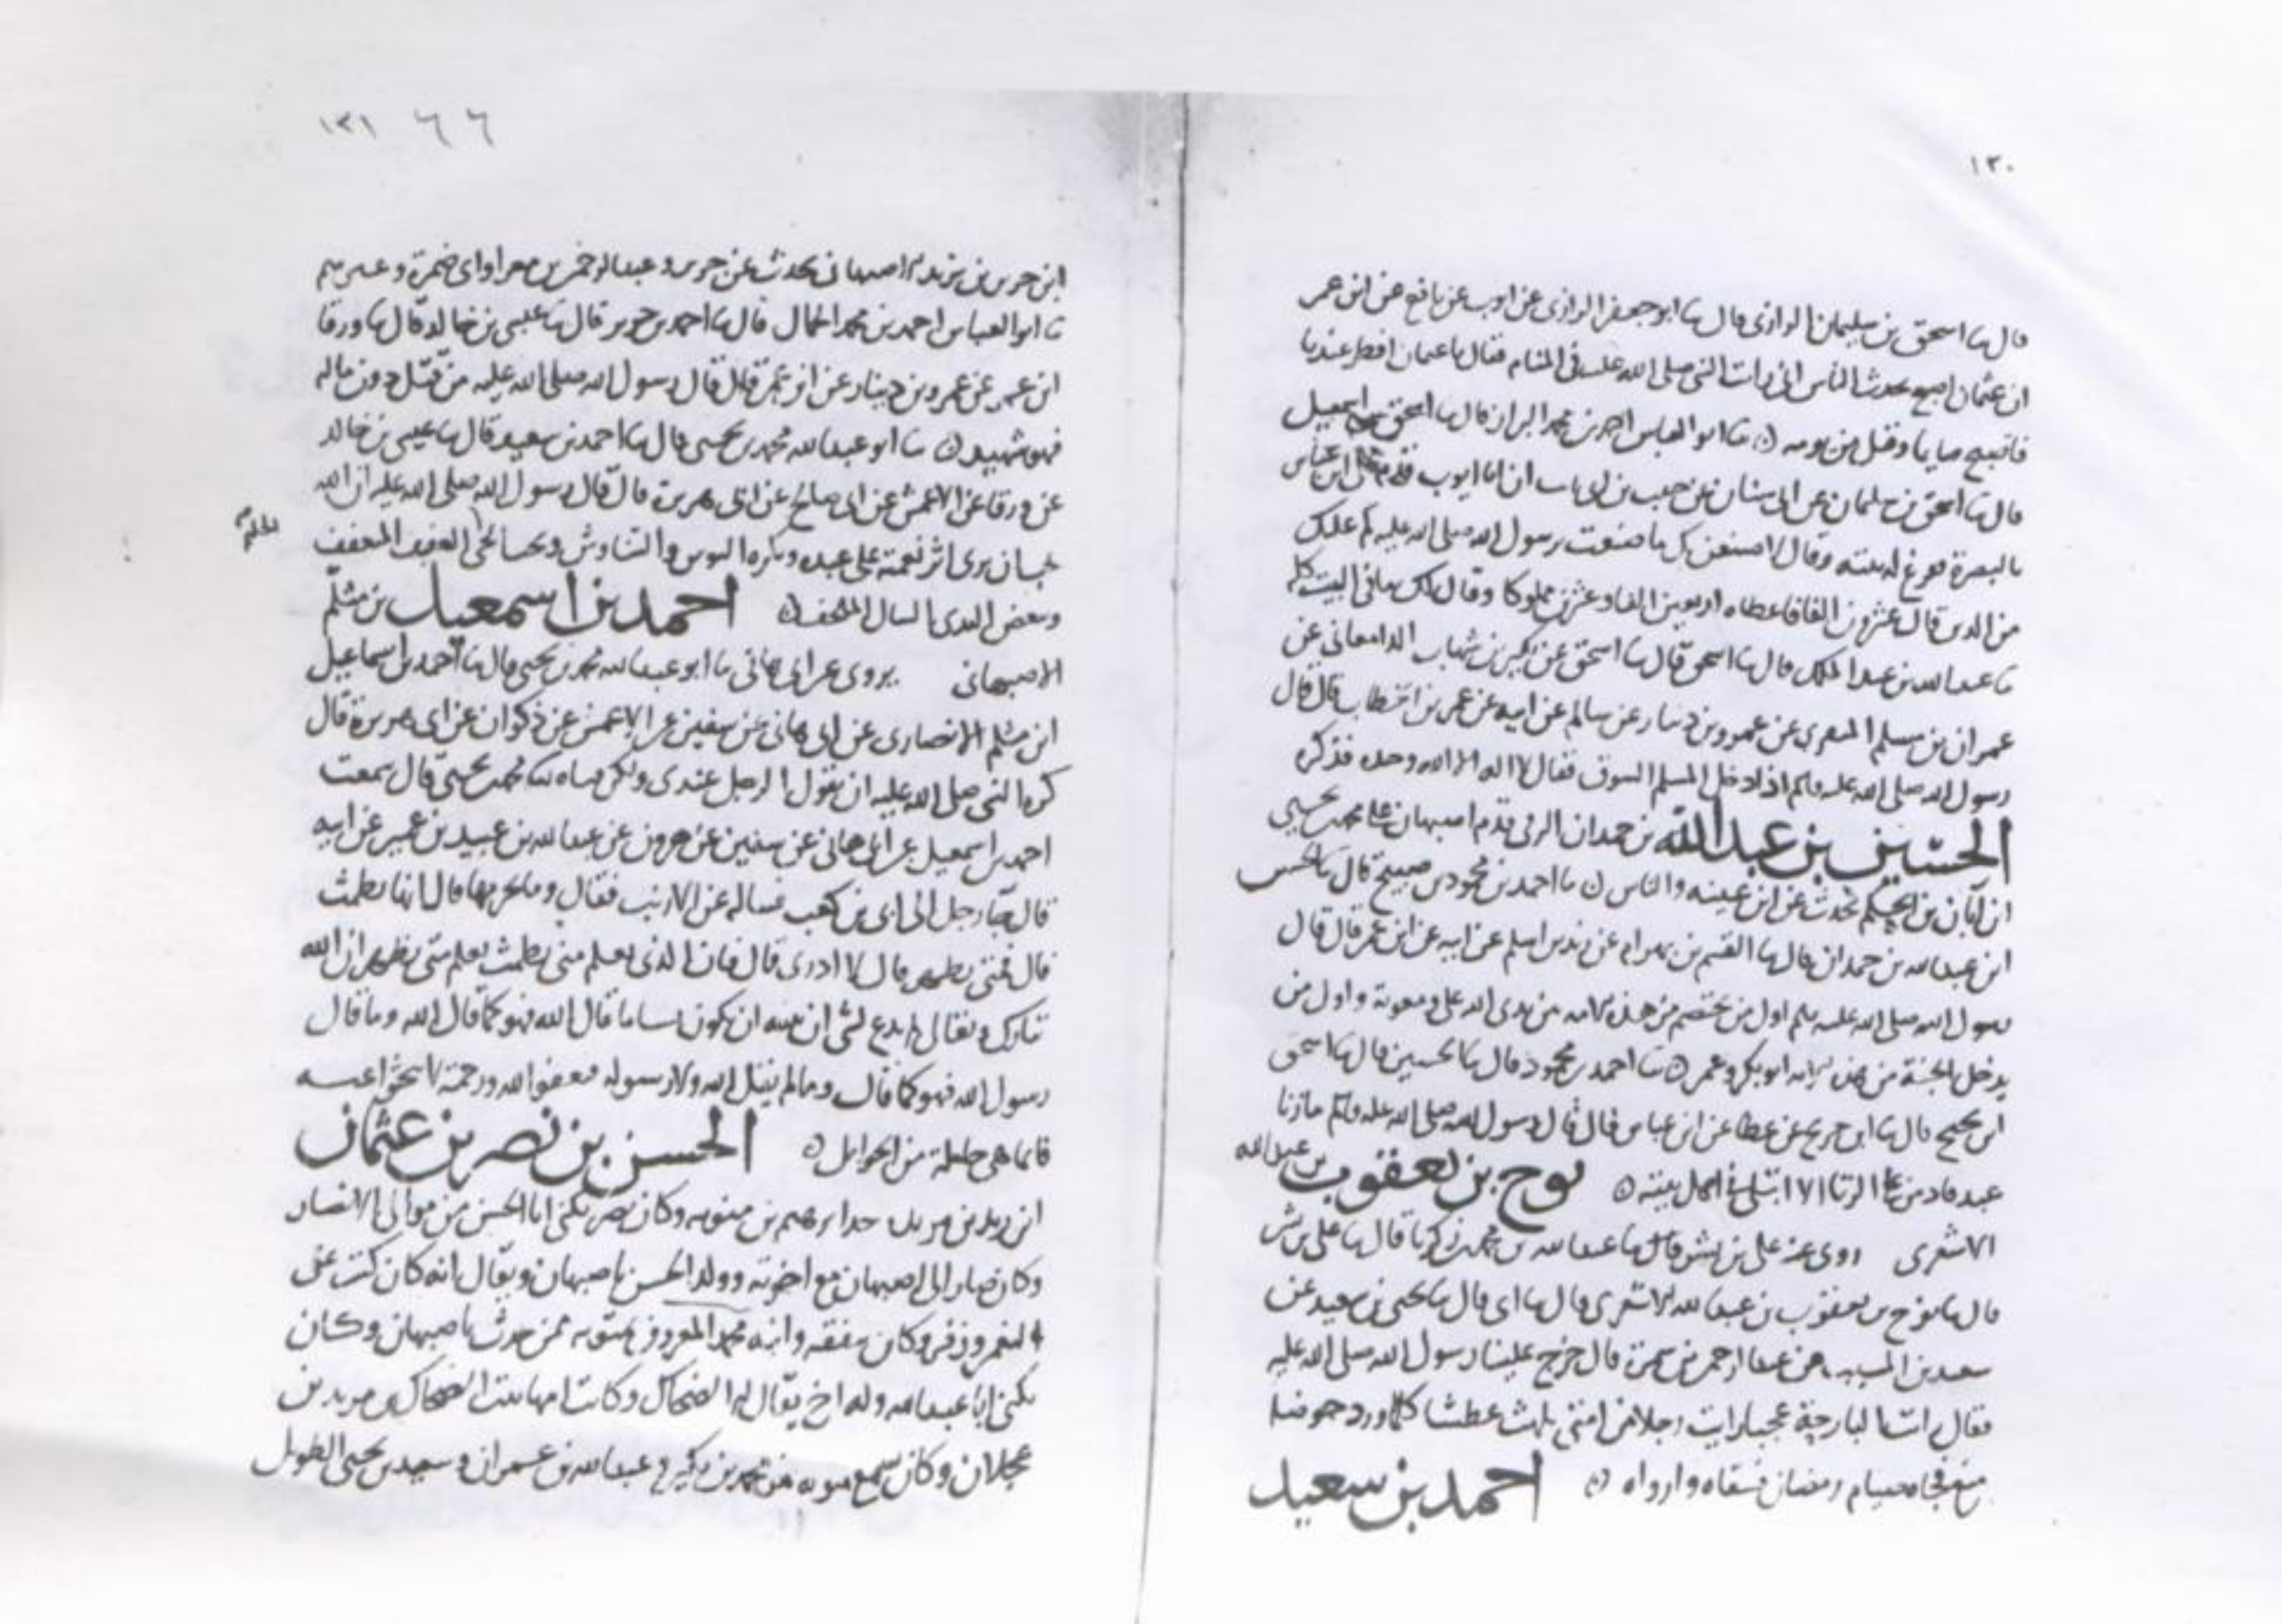 ١٣٠
قال ثنا اسحق بن سليمان الرازى قال ثنا ابو جعفر الرازى عن ايوب عن نافع عن ابن عمر
ان عثمان اصبح يحدث الناس انى رايت النبى صلى الله عليه فى المنام فقال يا عثمان افطر عندنا
فاصبح صايما وقتل من يومه ثنا ابو العباس احمد بن محمد البزاز قال ثنا اسحق بن اسمعيل
قال ثنا اسحق بن سليمان عن ابى سنان عن حبيب بن ابى ثابت ان ابا ايوب قدم على ابن عباس
بالبصرة ففرغ له بيته وقال لاصنعن بك ما صنعت برسول الله صلى الله عليه كم عليك
من الدين قال عشرون الفا فاعطاه اربعين الفا وعشرين مملوكا وقال لك ما فى البيت كله
ثنا عبد الله بن عبد الملك قال ثنا اسحق قال ثنا اسحق عن بكير بن شهاب الدامغانى عن
عمران بن مسلم المنقرى عن عمرو بن دينار عن سالم عن ابيه عن عمر بن الخطاب قال قال
رسول الله صلى الله عليه وسلم اذا دخل المسلم السوق فقال لا اله الا الله وحده فذكره
الحسين بن عبد الله بن حمدان الرقى قدم اصبهان محمد بن يحيى
ابن ابان بن الحكم يحدث عن ابن عيينه والناس ثنا احمد بن محمود بن صبيح قال ثنا الحسين
ابن عبد الله بن حمدان قال ثنا القسم بن بهرام عن زيد بن اسلم عن ابيه عن ابن عمر قال قال
رسول الله صلى الله عليه وسلم اول من يختصم من هذه الامه بين يدى الله على ومعوية واول من
يدخل الجنة من هذه الامه ابو بكر وعمر ثنا احمد بن محمود قال ثنا الحسين قال ثنا اسحق
ابن نجيح قال ثنا ابن جريج عن عطا عن ابن عباس قال قال رسول الله صلى الله عليه وسلم ما زنا
عبد فادمن على الزنا الا ابتلى فى اهل بيته نوح بن يعقوب بن عبد الله
الاشعرى روى عنه على بن بشر قال ثنا عبد الله بن محمد بن زكريا قال ثنا على بن بشر
قال ثنا نوح بن يعقوب بن عبد الله الاشعرى قال ثنا ابى قال ثنا يحيى بن سعيد عن
سعيد بن المسيب عن عبد الرحمن بن سمرة قال خرج علينا رسول الله صلى الله عليه
فقال رايت البارحة عجبا رايت رجلا من امتى يلهث عطشا كلما ورد حوضا
منع فجاه صيام رمضان فسقاه وارواه احمد بن سعيد
١٣١ ٦٦
ابن جرير بن يزيد الاصبهانى يحدث عن جرير وعبد الرحمن بن مغرا وابى ضمرة وغيرهم
ثنا ابو العباس احمد بن محمد الجمال قال ثنا احمد بن جرير قال ثنا عيسى بن خالد قال ثنا ورقا
ابن عمر عن عمرو بن دينار عن ابن عمر قال قال رسول الله صلى الله عليه من قتل دون ماله
فهو شهيد ثنا ابو عبد الله محمد بن يحيى قال ثنا احمد بن سعيد قال ثنا عيسى بن خالد
عن ورقا عن الاعمش عن ابى صالح عن ابى هريرة قال قال رسول الله صلى الله عليه ان الله
يحب ان يرى اثر نعمته على عبده ويكره البوس والتباوس ويحب الحى العفيف المتعفف
ويبغض البذى السال الملحف احمد بن اسمعيل بن مسلم
الاصبهانى يروى عن ابى هانى ثنا ابو عبد الله محمد بن يحيى قال ثنا احمد بن اسماعيل
ابن مسلم الانصارى عن ابى هانى عن سفين عن الاعمش عن ذكوان عن ابى هريرة قال
كره النبى صلى الله عليه ان يقول الرجل عبدى ولكن فتاه ثنا محمد بن يحيى قال سمعت
احمد بن اسمعيل عن ابى هانى عن سفين عن هرون عن عبد الله بن عبيد بن عمير عن ابيه
قال جا رجل الى ابى بن كعب فساله عن الارنب فقال وما يحرمها قال انها تطمث
قال فمتى تطهر قال لا ادرى قال فان الذى يعلم متى تطمث يعلم متى تطهر ان الله
تبارك وتعالى لم يدع لشى ان يبينه ان يكون نسيا ما قال الله فهو كما قال الله وما قال
رسول الله فهو كما قال وما لم يقل الله ولا رسوله فبعفو الله ورحمته لا تبحثوا عنه
فانما هى حاملة من الحوامل الحسن بن نصر بن عثمان
ابن زيد بن مزيد جد ابرهيم بن متويه وكان نصر يكنى ابا الحسن من موالى الانصار
وكان صار الى اصبهان مع اخوته وولد الحسن باصبهان ويقال انه كان كتب عن
وزفر وكان يتفقه وابنه محمد المعروف بمتويه ممن حدث باصبهان وكان
يكنى ابا عبد الله وله اخ يقال له الضحاك وكانت امها بنت الضحاك بن مزيد بن
عجلان وكان سمع متويه من محمد بن بكير وعبد الله بن عمران وسعيد بن يحيى الطويل